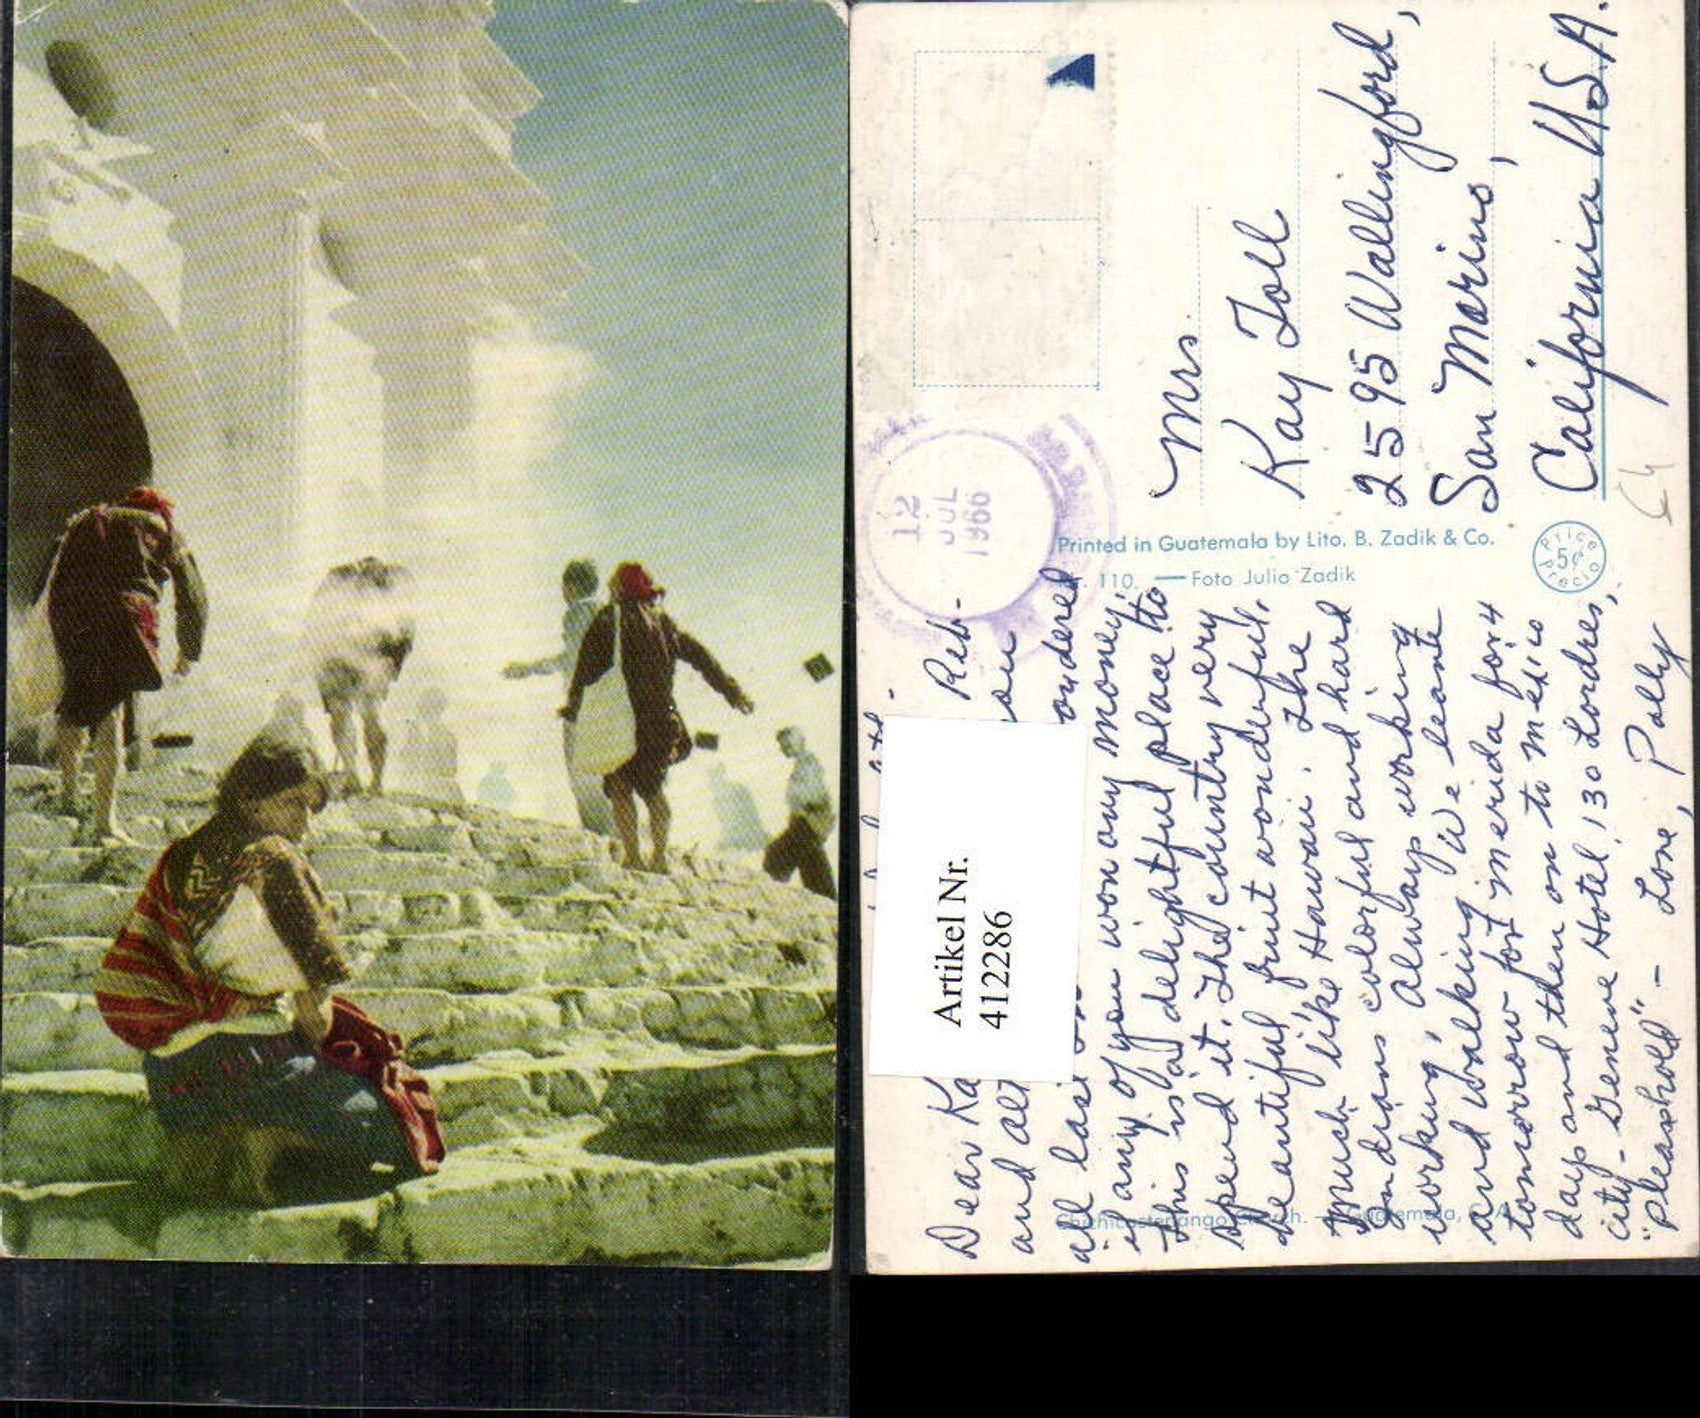 Mrs.
Kay Toll
2595 Wallingford,
San Marino,
California U.S.A.
12
JUL
1966
Printed in Guatemala by Lito. B. Zadik & Co.
110. — Foto Julio Zadik
Price
5¢
Precio
Artikel Nr.
412286
Dear Ka
and all
all last
if any of you won any money,
this is a delightful place to
spend it. The country very
beautiful, fruit wonderful.
Much like Hawaii. The
Indians colorful and hard
working, Always working
and walking. We leave
tomorrow for Merida for 4
days and then on to Mexico
city - Geneve Hotel, 130 Londres,
"pleashold" - Love, Pally
Chichicastenango Church. — Guatemala, C. A.